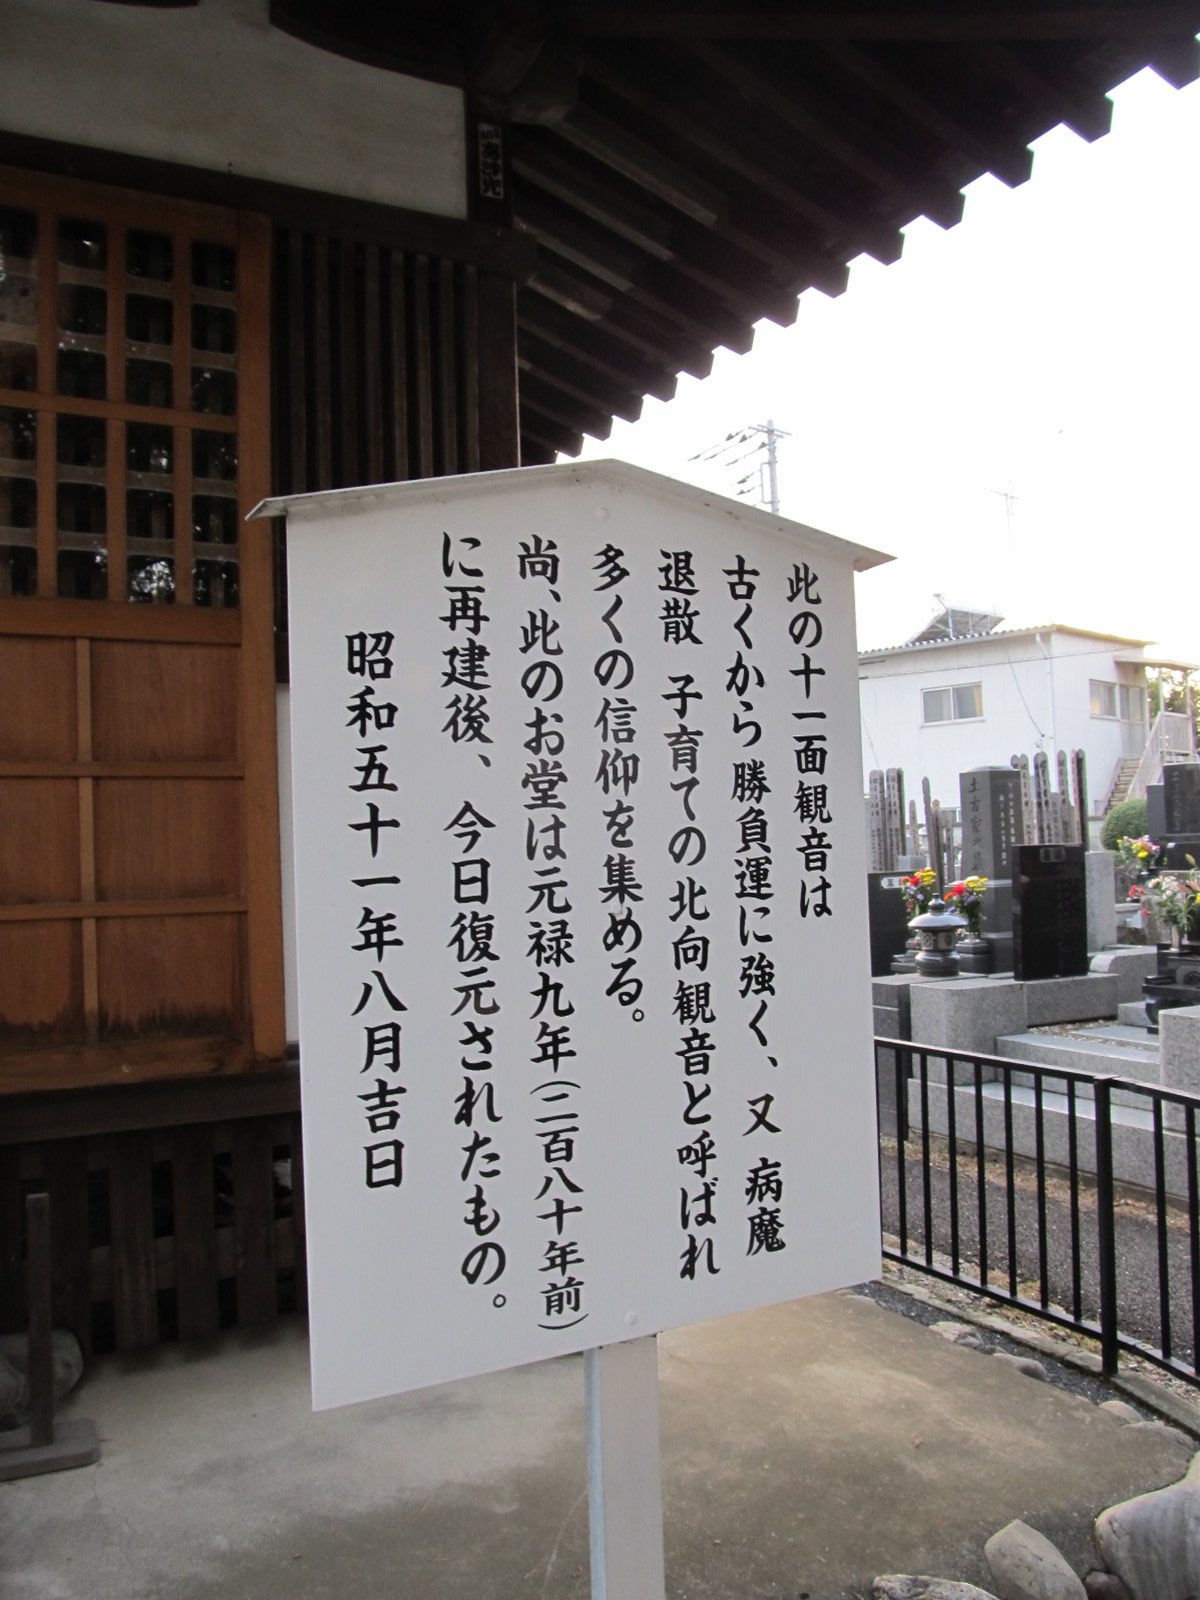 此の十一面観音は
古くから勝負運に強く、又 病魔
退散 子育ての北向観音と呼ばれ
多くの信仰を集める。
尚、此のお堂は元禄九年(二百八十年前)
に再建後、今日復元されたもの。
昭和五十一年八月吉日